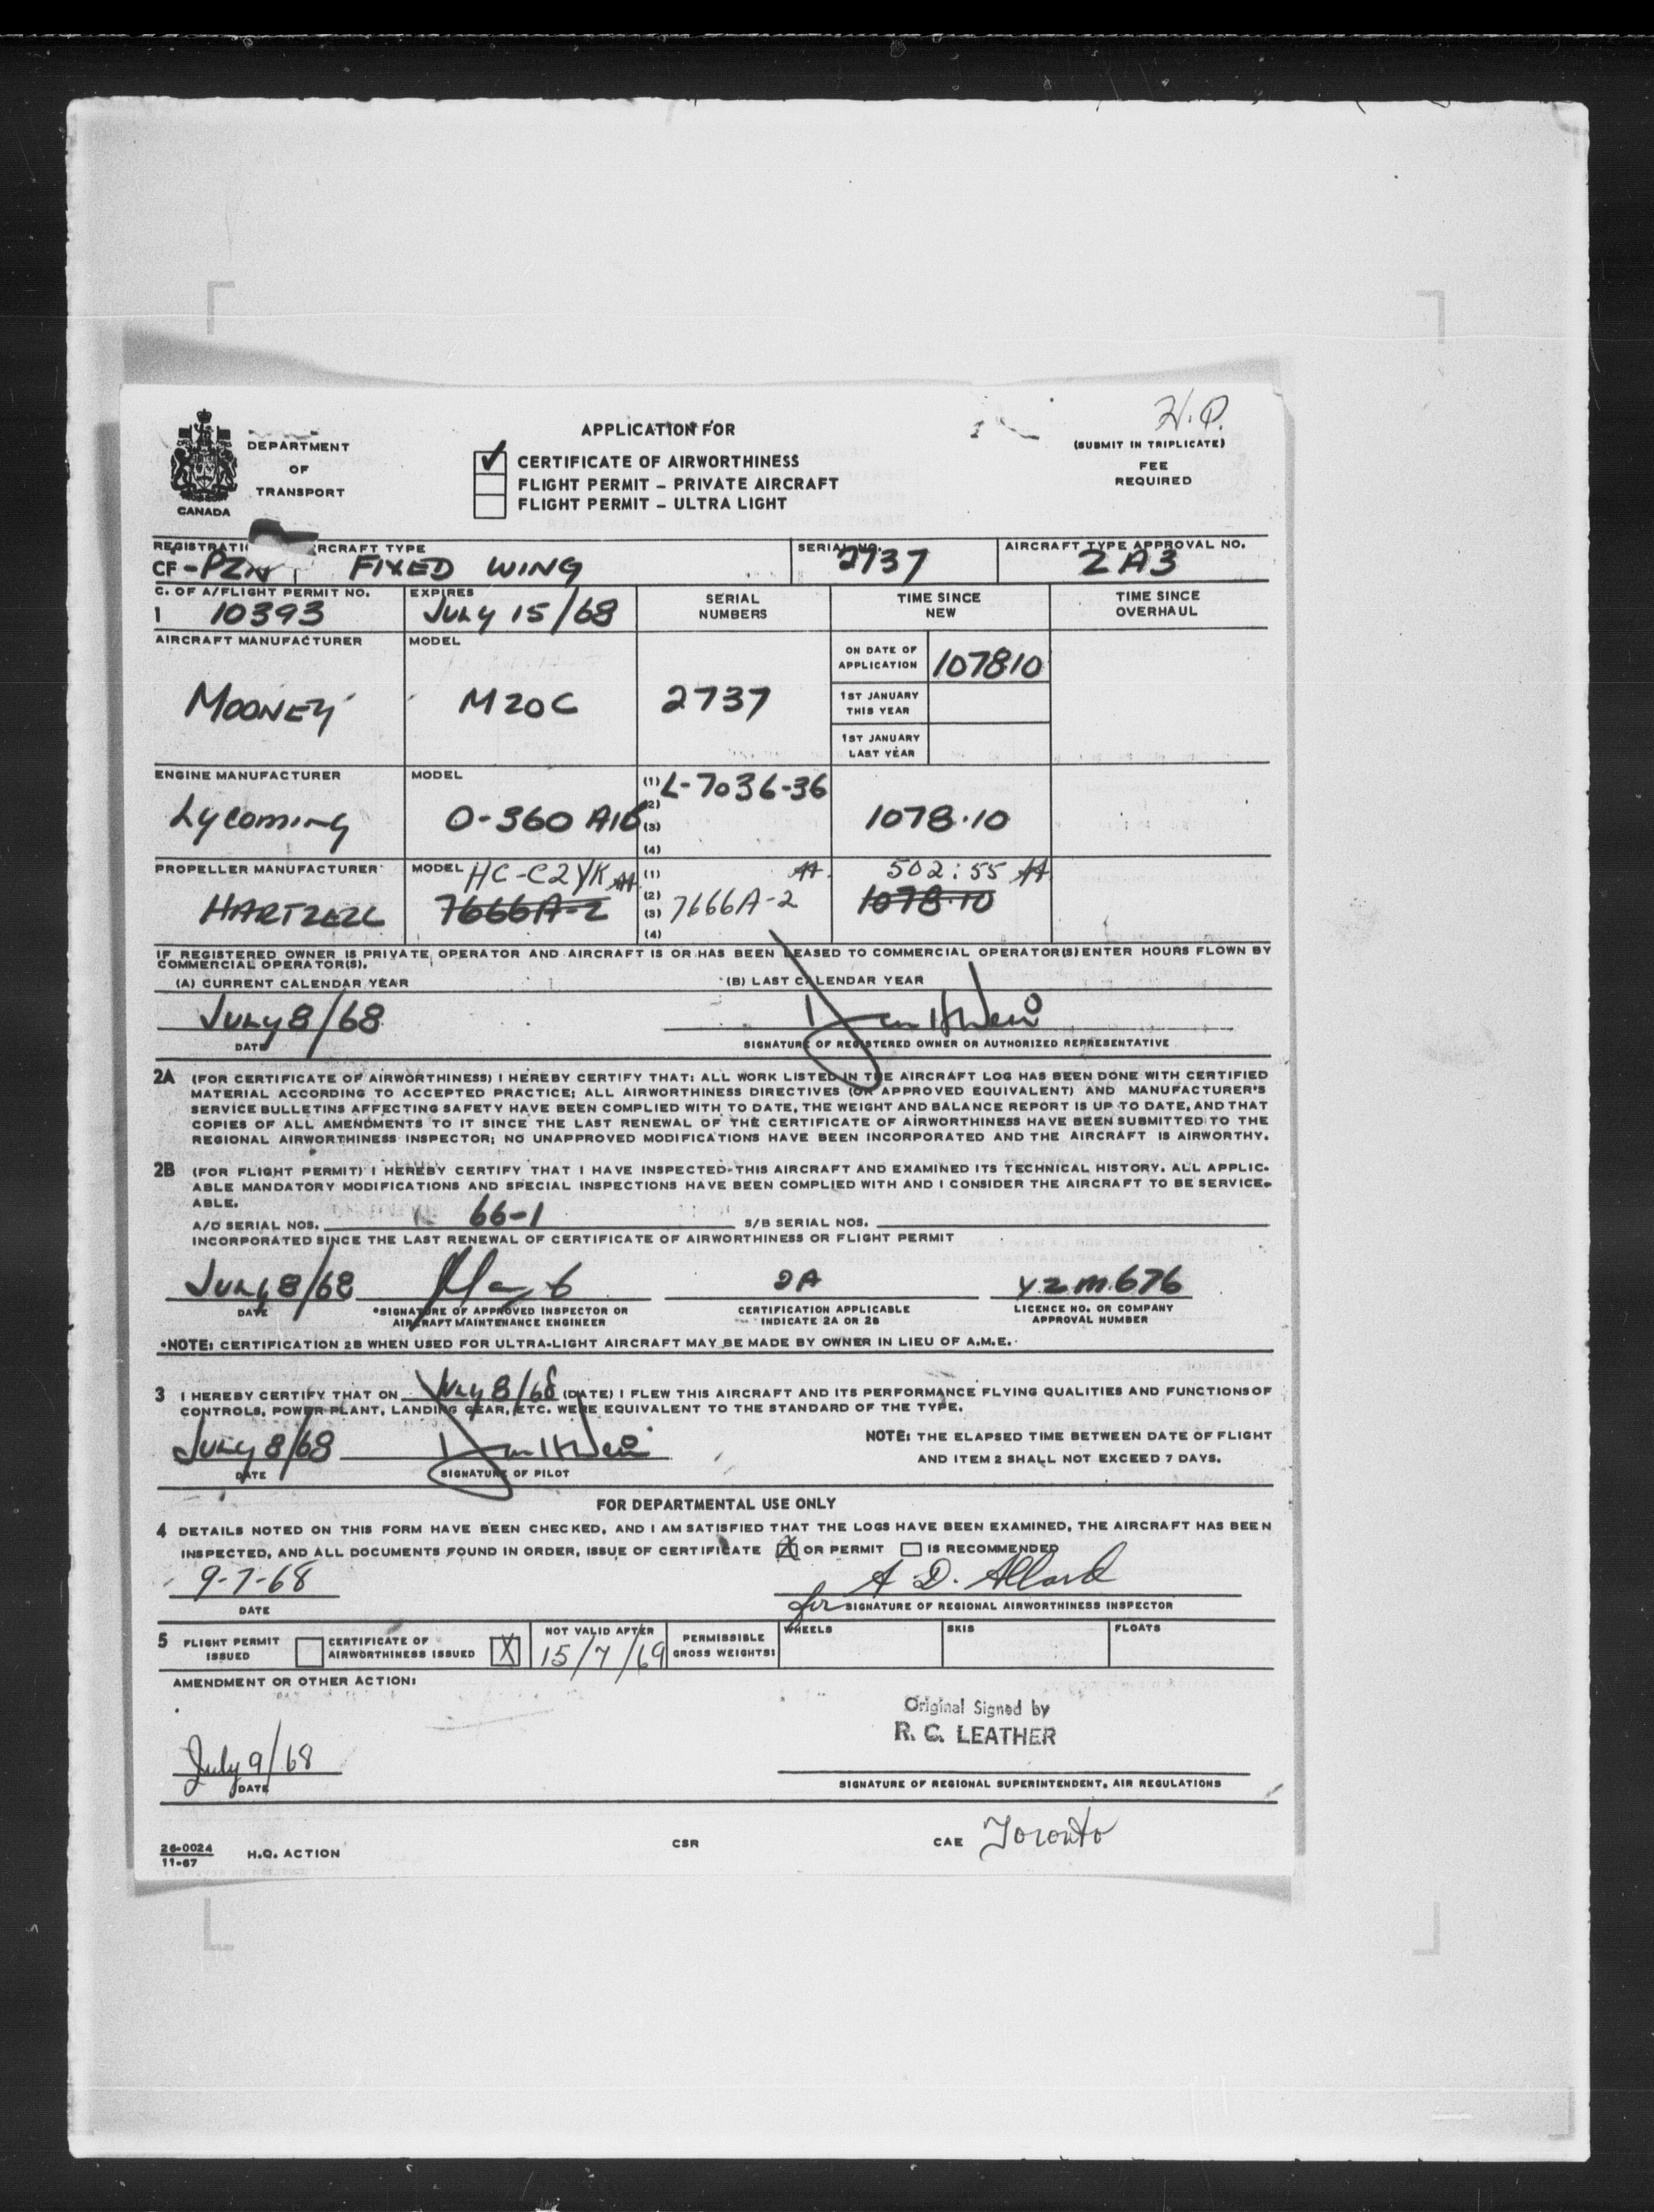 H.Q.
DEPARTMENT
OF
TRANSPORT
CANADA
APPLICATION FOR
CERTIFICATE OF AIRWORTHINESS
FLIGHT PERMIT – PRIVATE AIRCRAFT
FLIGHT PERMIT – ULTRA LIGHT
(SUBMIT IN TRIPLICATE)
FEE
REQUIRED
REGISTRATI RCRAFT TYPE SERIAL NO. AIRCRAFT TYPE APPROVAL NO.
CF-PZN FIXED WING 2737 2A3
C. OF A/FLIGHT PERMIT NO. EXPIRES SERIAL NUMBERS TIME SINCE NEW TIME SINCE OVERHAUL
1 10393 JULY 15/68
AIRCRAFT MANUFACTURER MODEL
MOONEY M20C 2737
ON DATE OF APPLICATION 1078.10
1ST JANUARY THIS YEAR
1ST JANUARY LAST YEAR
ENGINE MANUFACTURER MODEL (1) L-7036-36
Lycoming O-360 A1D (2) (3) (4) 1078.10
PROPELLER MANUFACTURER MODEL HC-C2YK AA (1) AA 502:55 AA
HARTZELL 7666A-2 (2) (3) (4) 7666A-2 1078.10
IF REGISTERED OWNER IS PRIVATE OPERATOR AND AIRCRAFT IS OR HAS BEEN LEASED TO COMMERCIAL OPERATOR(S) ENTER HOURS FLOWN BY
COMMERCIAL OPERATOR(S).
(A) CURRENT CALENDAR YEAR (B) LAST CALENDAR YEAR
JULY 8/68
DATE SIGNATURE OF REGISTERED OWNER OR AUTHORIZED REPRESENTATIVE
2A (FOR CERTIFICATE OF AIRWORTHINESS) I HEREBY CERTIFY THAT: ALL WORK LISTED IN THE AIRCRAFT LOG HAS BEEN DONE WITH CERTIFIED
MATERIAL ACCORDING TO ACCEPTED PRACTICE; ALL AIRWORTHINESS DIRECTIVES (OR APPROVED EQUIVALENT) AND MANUFACTURER'S
SERVICE BULLETINS AFFECTING SAFETY HAVE BEEN COMPLIED WITH TO DATE, THE WEIGHT AND BALANCE REPORT IS UP TO DATE, AND THAT
COPIES OF ALL AMENDMENTS TO IT SINCE THE LAST RENEWAL OF THE CERTIFICATE OF AIRWORTHINESS HAVE BEEN SUBMITTED TO THE
REGIONAL AIRWORTHINESS INSPECTOR; NO UNAPPROVED MODIFICATIONS HAVE BEEN INCORPORATED AND THE AIRCRAFT IS AIRWORTHY.
2B (FOR FLIGHT PERMIT) I HEREBY CERTIFY THAT I HAVE INSPECTED THIS AIRCRAFT AND EXAMINED ITS TECHNICAL HISTORY. ALL APPLIC-
ABLE MANDATORY MODIFICATIONS AND SPECIAL INSPECTIONS HAVE BEEN COMPLIED WITH AND I CONSIDER THE AIRCRAFT TO BE SERVICE-
ABLE.
A/D SERIAL NOS. 66-1 S/B SERIAL NOS.
INCORPORATED SINCE THE LAST RENEWAL OF CERTIFICATE OF AIRWORTHINESS OR FLIGHT PERMIT
JULY 8/68 2A Y.Z.M.676
DATE *SIGNATURE OF APPROVED INSPECTOR OR AIRCRAFT MAINTENANCE ENGINEER CERTIFICATION APPLICABLE INDICATE 2A OR 2B LICENCE NO. OR COMPANY APPROVAL NUMBER
*NOTE: CERTIFICATION 2B WHEN USED FOR ULTRA-LIGHT AIRCRAFT MAY BE MADE BY OWNER IN LIEU OF A.M.E.
3 I HEREBY CERTIFY THAT ON July 8/68 (DATE) I FLEW THIS AIRCRAFT AND ITS PERFORMANCE FLYING QUALITIES AND FUNCTIONS OF
CONTROLS, POWER PLANT, LANDING GEAR, ETC. WERE EQUIVALENT TO THE STANDARD OF THE TYPE.
JULY 8/68
DATE SIGNATURE OF PILOT
NOTE: THE ELAPSED TIME BETWEEN DATE OF FLIGHT
AND ITEM 2 SHALL NOT EXCEED 7 DAYS.
FOR DEPARTMENTAL USE ONLY
4 DETAILS NOTED ON THIS FORM HAVE BEEN CHECKED, AND I AM SATISFIED THAT THE LOGS HAVE BEEN EXAMINED, THE AIRCRAFT HAS BEEN
INSPECTED, AND ALL DOCUMENTS FOUND IN ORDER, ISSUE OF CERTIFICATE X OR PERMIT IS RECOMMENDED
9-7-68 A.D. Allard
DATE for SIGNATURE OF REGIONAL AIRWORTHINESS INSPECTOR
5 FLIGHT PERMIT ISSUED CERTIFICATE OF AIRWORTHINESS ISSUED X NOT VALID AFTER 15/7/69 PERMISSIBLE GROSS WEIGHTS: WHEELS SKIS FLOATS
AMENDMENT OR OTHER ACTION:
Original Signed by
R. C. LEATHER
July 9/68
DATE SIGNATURE OF REGIONAL SUPERINTENDENT, AIR REGULATIONS
26-0024
11-67 H.Q. ACTION CSR CAE Toronto